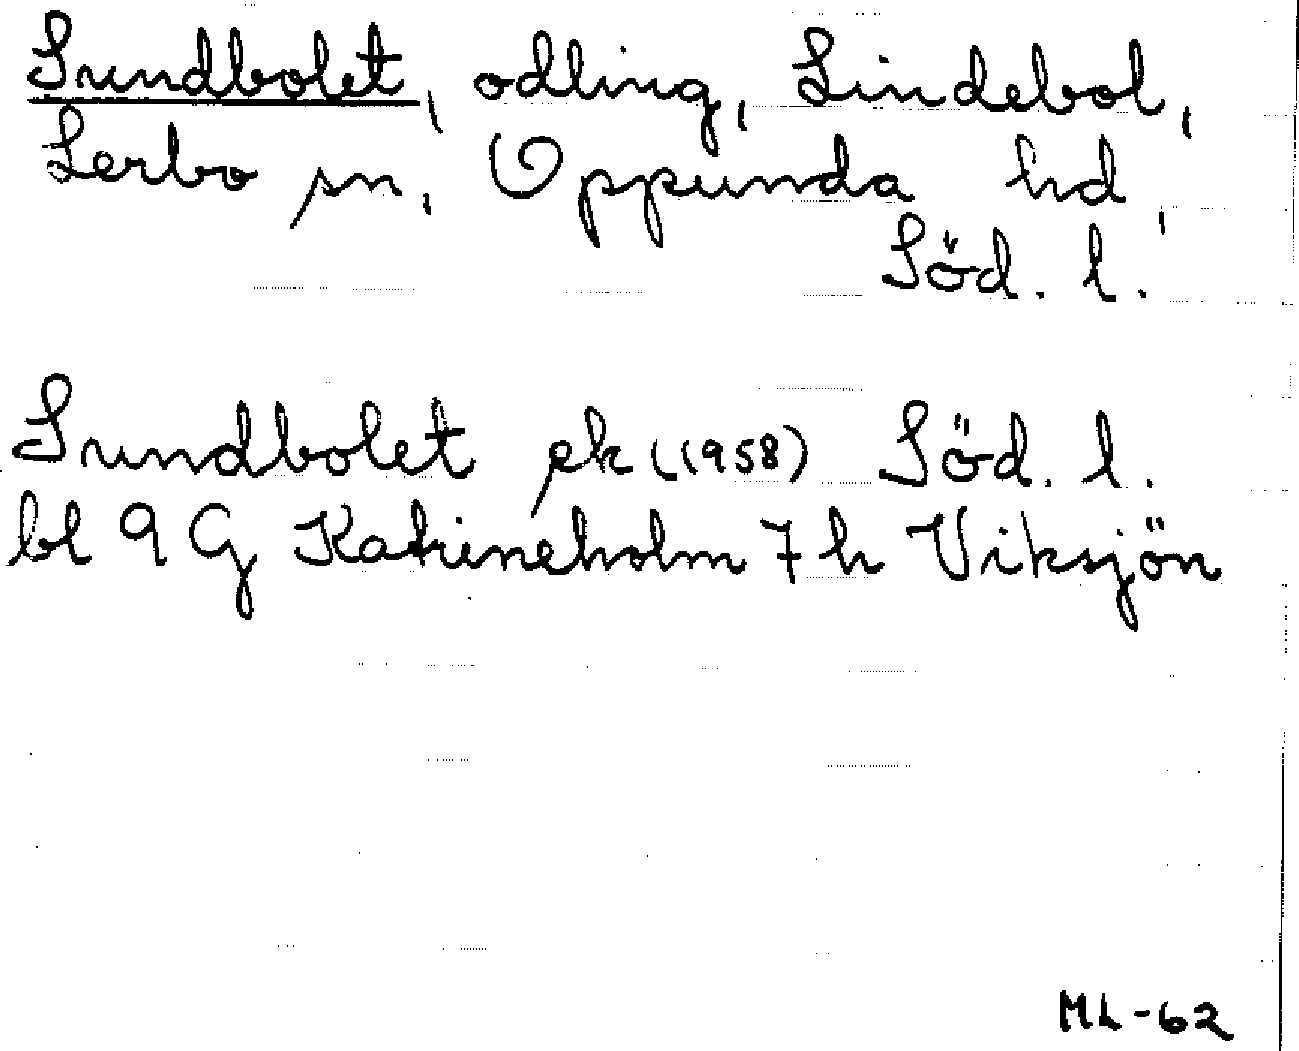 Sundbolet, odling, Lindebol,
Lerbo sn, Oppunda hd,
Söd. l.
Sundbolet ek (1958) Söd. l.
bl 9 G Katrineholm 7 h Viksjön
ML-62